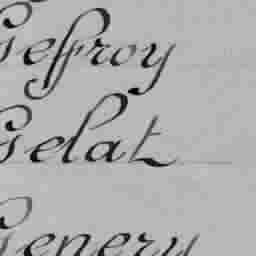 Geffroy
Gelat
Genery